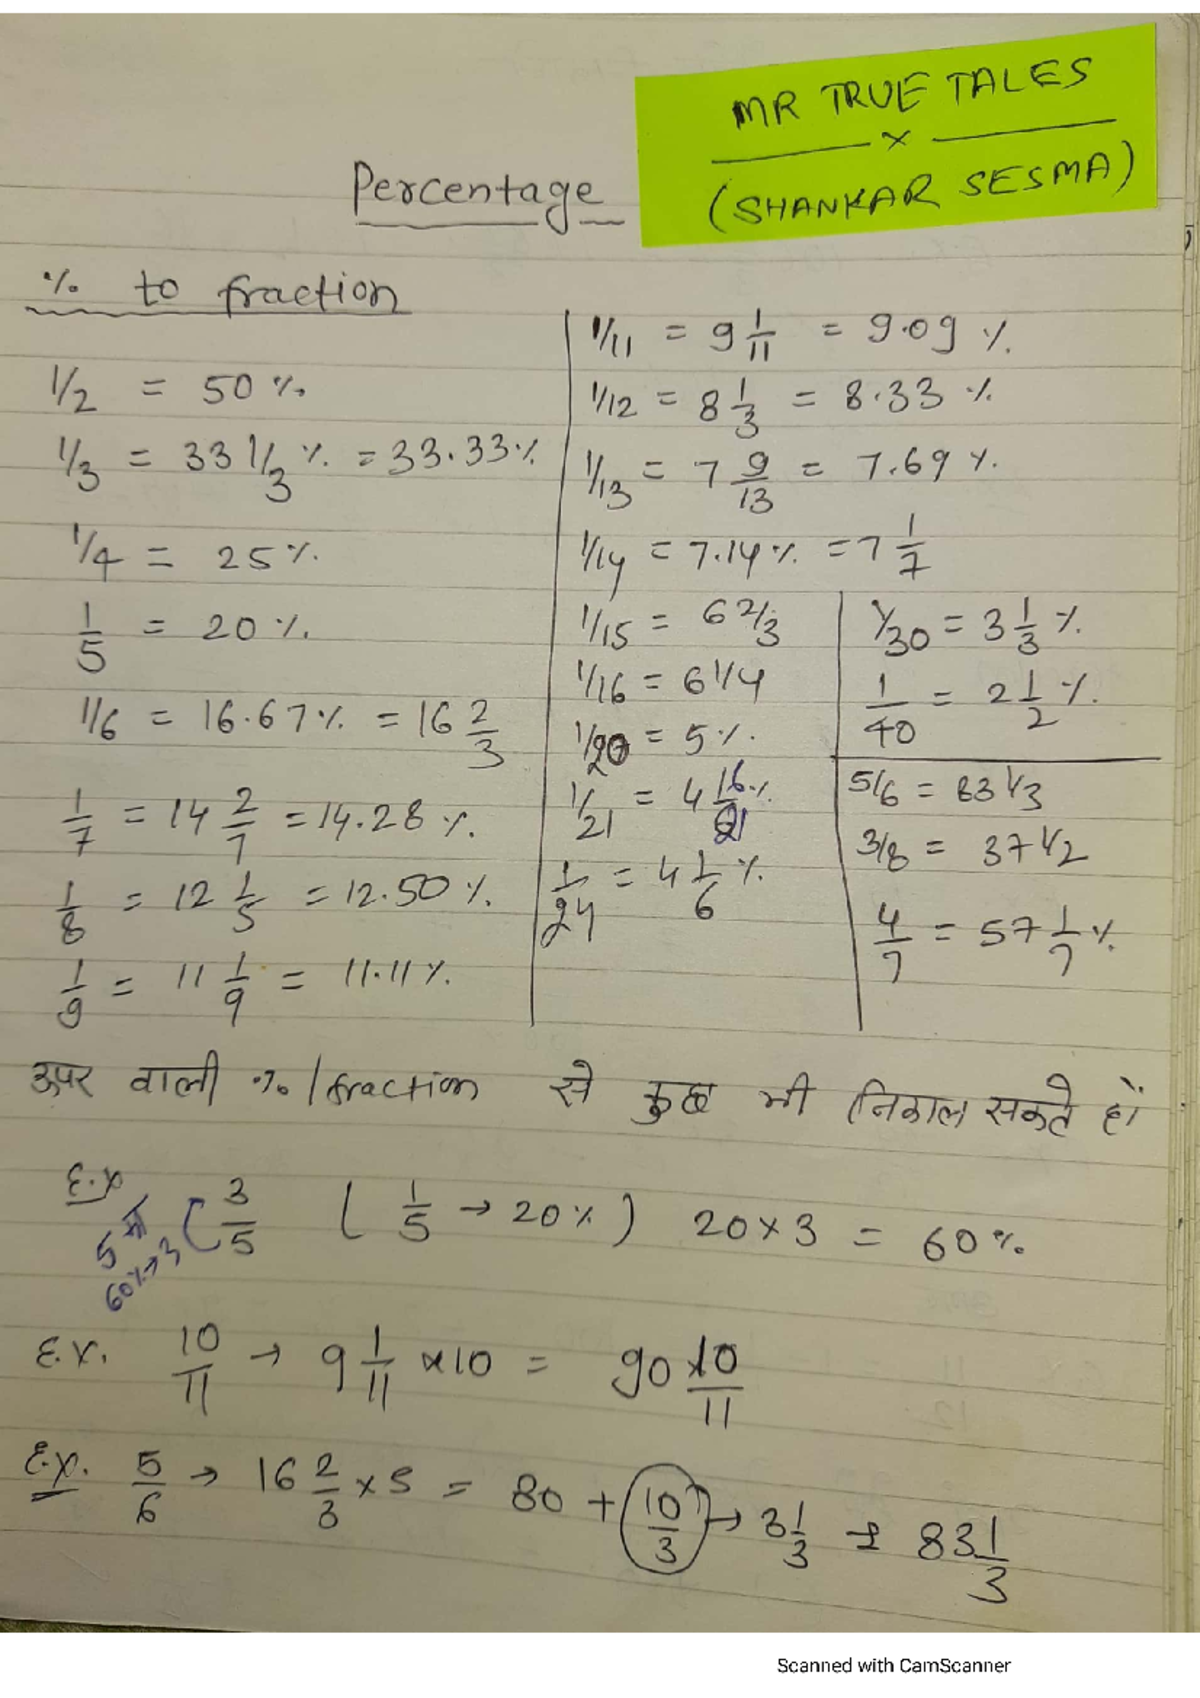 MR TRUE TALES
x
(SHANKAR SESMA)
Percentage
% to fraction
1/2 = 50 %
1/3 = 33 1/3 % = 33.33 %
1/4 = 25 %
1/5 = 20 %
1/6 = 16.67 % = 16 2/3
1/7 = 14 2/7 = 14.28 %
1/8 = 12 1/5 = 12.50 %
1/9 = 11 1/9 = 11.11 %
1/11 = 9 1/11 = 9.09 %
1/12 = 8 1/3 = 8.33 %
1/13 = 7 9/13 = 7.69 %
1/14 = 7.14 % = 7 1/7
1/15 = 6 2/3
1/16 = 6 1/4
1/20 = 5 %
1/21 = 4 16/21 %
1/24 = 4 1/6 %
1/30 = 3 1/3 %
1/40 = 2 1/2 %
5/6 = 83 1/3
3/8 = 37 1/2
4/7 = 57 1/7 %
ऊपर वाली % / fraction से कुछ भी निकाल सकते हों
E.x 3/5 ( 1/5 → 20 % ) 20 x 3 = 60 %
5 में
60% → 3
E.x. 10/11 → 9 1/11 x 10 = 90 10/11
E.x. 5/6 → 16 2/3 x 5 = 80 + 10/3 → 3 1/3 = 83 1/3
Scanned with CamScanner